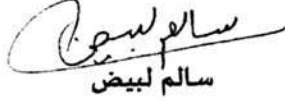 سالم لبيض
سالم لبيض